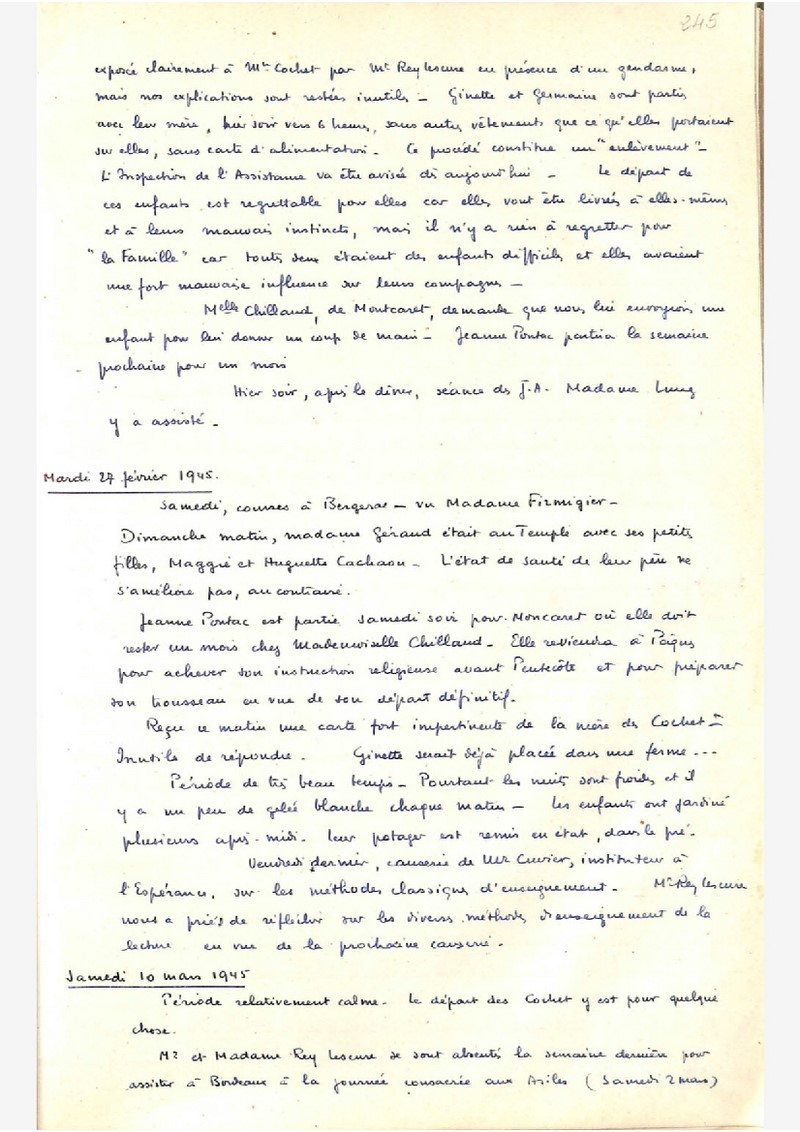 245
exposé clairement à Mme Cochet par Mr Rey Lescure en présence d'un gendarme,
mais nos explications sont restées inutiles – Ginette et Germaine sont parties
avec leur mère, hier soir vers 6 heures, sans autres vêtements que ce qu'elles portaient
sur elles, sans carte d'alimentation – Ce procédé constitue un "enlèvement" –
L'Inspection de l'Assistance va être avisée dès aujourd'hui – Le départ de
ces enfants est regrettable pour elles car elles vont être livrées à elles-mêmes
et à leurs mauvais instincts, mais il n'y a rien à regretter pour
"la Famille" car toutes deux étaient des enfants difficiles et elles avaient
une fort mauvaise influence sur leurs compagnes –
Melle Chillaud, de Montcaret, demande que nous lui envoyions une
enfant pour lui donner un coup de main – Jeanne Pontac partira la semaine
prochaine pour un mois
Hier soir, après le dîner, séance des J.A. Madame Lung
y a assisté –
Mardi 27 février 1945.
Samedi, courses à Bergerac – vu Madame Firmigier –
Dimanche matin, madame Géraud était au Temple avec ses petites
filles, Maggie et Huguette Cachaou – L'état de santé de leur père ne
s'améliore pas, au contraire.
Jeanne Pontac est partie samedi soir pour Moncaret où elle doit
rester un mois chez Mademoiselle Chillaud – Elle reviendra à Pâques
pour achever son instruction religieuse avant Pentecôte et pour préparer
son trousseau en vue de son départ définitif.
Reçu ce matin une carte fort impertinente de la mère des Cochet –
Inutile de répondre. Ginette serait déjà placée dans une ferme ...
Période de très beau temps – Pourtant les nuits sont froides et il
y a un peu de gelée blanche chaque matin – Les enfants ont jardiné
plusieurs après-midi. Leur potager est remis en état, dans le pré.
Vendredi dernier, causerie de Mr Cuvier, instituteur à
l'Espérance, sur les méthodes classiques d'enseignement – Mr Rey Lescure
nous a priés de réfléchir sur les diverses méthodes d'enseignement de la
lecture en vue de la prochaine causerie.
Samedi 10 mars 1945
Période relativement calme. Le départ des Cochet y est pour quelque
chose.
Mr et Madame Rey Lescure se sont absentés la semaine dernière pour
assister à Bordeaux à la journée consacrée aux Asiles (Samedi 2 mars)